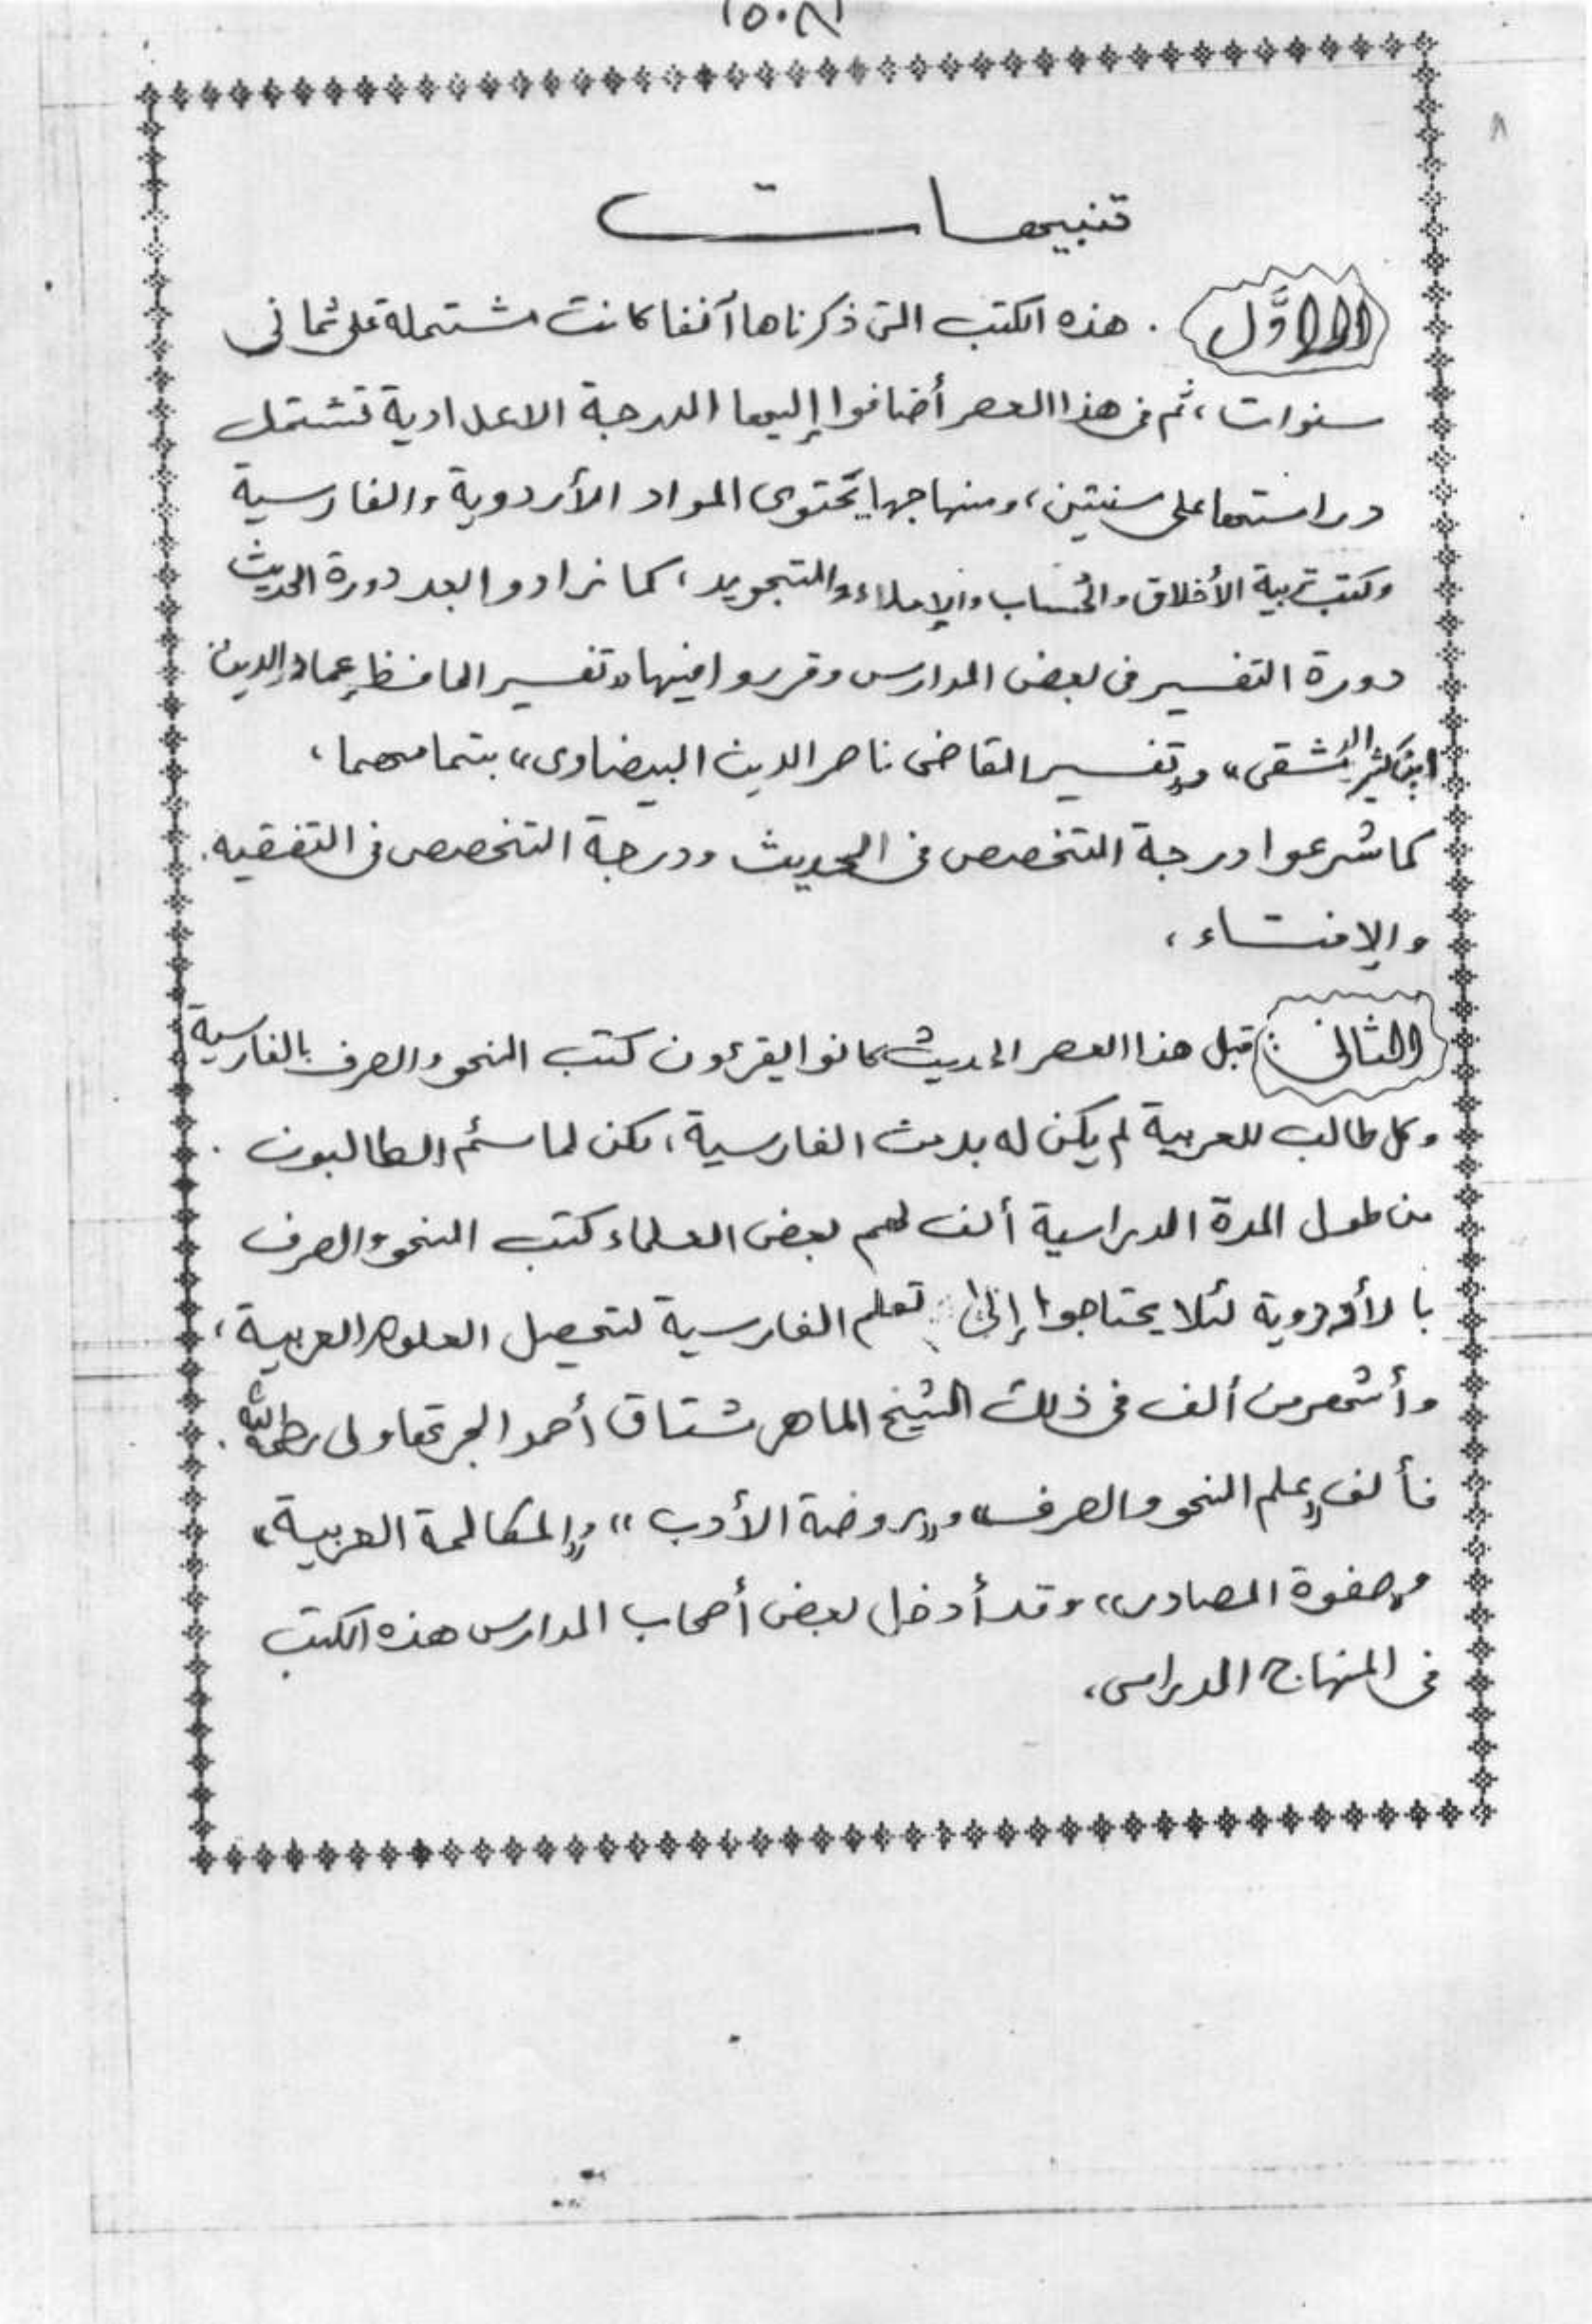 ٨
تنبيهات
الأوَّل . هذه الكتب التى ذكرناها آنفا كانت مشتملة على ثمانى
سنوات، ثم فى هذا العصر أضافوا إليها الدرجة الاعدادية تشتمل
دراستها على سنتين، ومنهاجها يحتوى المواد الأردوية والفارسية
وكتب تربية الأخلاق والحساب والإملاء والتجويد، كما زادوا بعد دورة الحديث
دورة التفسير فى بعض المدارس وقرروا فيها «تفسير الحافظ عماد الدين
ابن كثير الدمشقى» و«تفسير القاضى ناصر الدين البيضاوى» بتمامهما،
كما شرعوا درجة التخصص فى الحديث ودرجة التخصص فى التفقيه.
والإفتاء،
الثانى : قبل هذا العصر الحديث كانوا يقرءون كتب النحو والصرف بالفارسية
وكل طالب للعربية لم يكن له بد من الفارسية، لكن لما سئم الطالبون .
من طول المدة الدراسية ألف لهم بعض العلماء كتب النحو والصرف
بالأردوية لئلا يحتاجوا إلى تعلم الفارسية لتحصيل العلوم العربية،
وأشهر من ألف فى ذلك الشيخ الماهر مشتاق أحمد الجرتهاولى رحمه الله .
فألف «علم النحو والصرف» و«روضة الأدب» و«المكالمة العربية»
و«صفوة المصادر» وقد أدخل بعض أصحاب المدارس هذه الكتب
فى المنهاج الدراسى،